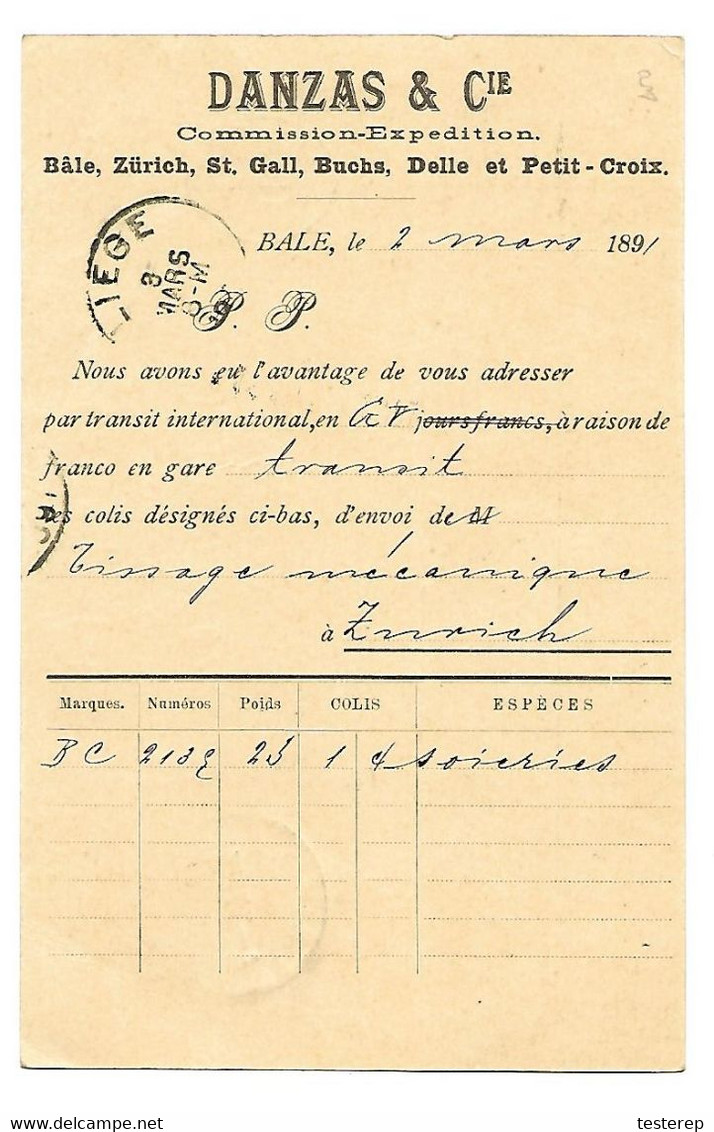 DANZAS & CIE
Commission-Expedition.
Bâle, Zürich, St. Gall, Buchs, Delle et Petit-Croix.
BALE, le 2 mars 1891
LIEGE
3
MARS
8-M
P. P.
Nous avons eu l'avantage de vous adresser
par transit international, en GV jours francs, à raison de
franco en gare transit
les colis désignés ci-bas, d'envoi de M
Tissage mécanique
à Zurich
Marques. Numéros Poids COLIS ESPÈCES
BC 213 23 1 soieries
testerep